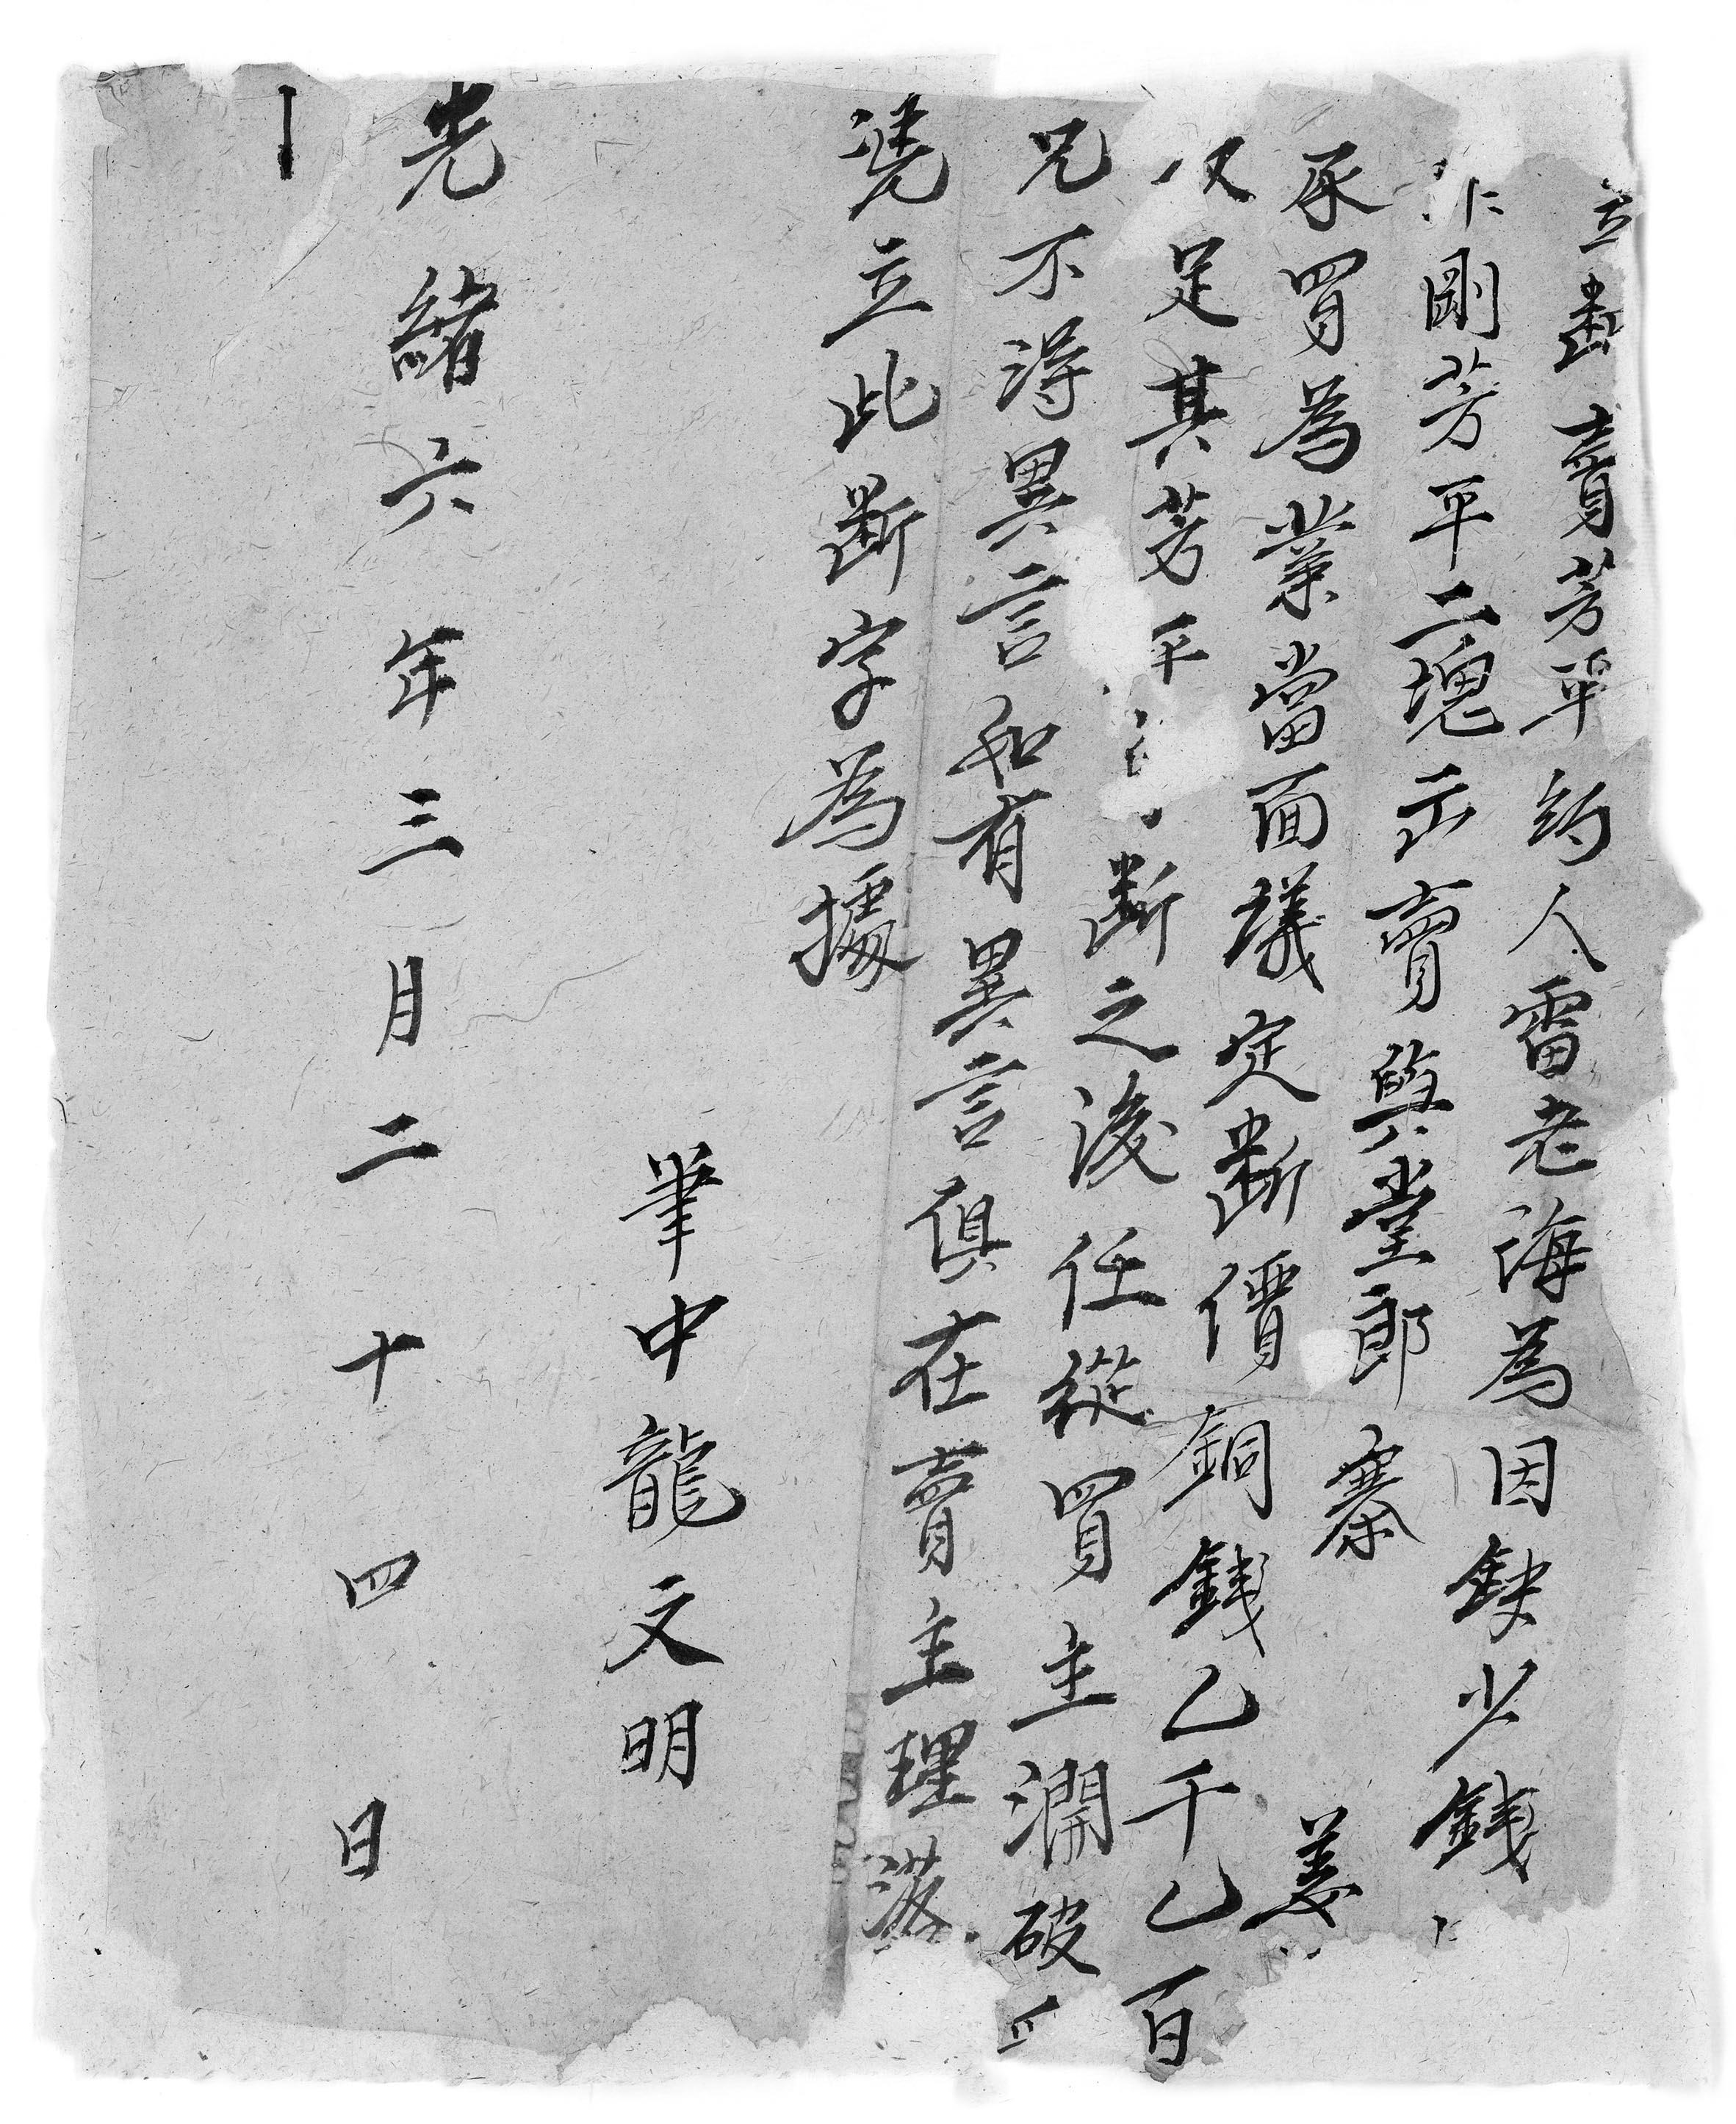 立斷賣芳平約人雷老海為因缺少錢
剛芳平二塊出賣與堂郎寨 姜
承買為業當面議定斷價銅錢乙千乙百
足其芳平 斷之後任從買主澗破
兄不淂異言如有異言俱在賣主理落
凴立此斷字為據
筆中龍文明
光緒六年三月二十四日